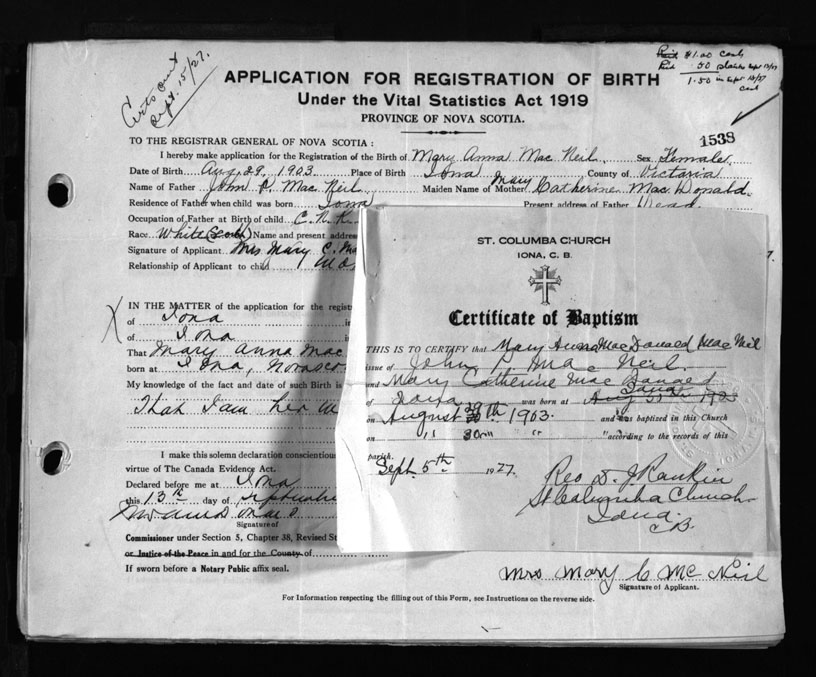 Certs sent
Sept. 15/27.
Paid $1.00 cash
.50
1.50
cash
APPLICATION FOR REGISTRATION OF BIRTH
Under the Vital Statistics Act 1919
PROVINCE OF NOVA SCOTIA.
1538
TO THE REGISTRAR GENERAL OF NOVA SCOTIA:
I hereby make application for the Registration of the Birth of Mary Anna Mac Neil Sex Female
Date of Birth Aug 29, 1903 Place of Birth Iona County of Victoria
Name of Father John P. Mac Neil Maiden Name of Mother Mary Catherine Mac Donald
Residence of Father when child was born Iona Present address of Father Dead
Occupation of Father at Birth of child C. N. R.
Race White (Scotch) Name and present address
Signature of Applicant Mrs Mary C. Ma
Relationship of Applicant to child
IN THE MATTER of the application for the regist
of Iona in
of Iona
That Mary Anna Mac
born at Iona, Nova Sco
My knowledge of the fact and date of such Birth is
That I am her
I make this solemn declaration conscientious
virtue of The Canada Evidence Act.
Declared before me at Iona
this 13th day of September
Signature of
Commissioner under Section 5, Chapter 38, Revised St
or Justice of the Peace in and for the County of
If sworn before a Notary Public affix seal.
Mrs Mary C Mc Neil
Signature of Applicant.
For Information respecting the filling out of this Form, see Instructions on the reverse side.
ST. COLUMBA CHURCH
IONA, C. B.
Certificate of Baptism
THIS IS TO CERTIFY that Mary Anna MacDonald MacNeil
issue of John P. Mac Neil
and Mary Catherine Mac Donald
of Iona was born at Iona Aug 30th 190
on August 29th 1903. and was baptized in this Church
on " 30th " "according to the records of this
parish.
Sept. 5th 1927.
Rev D. J Rankin
St Columba Church
Iona
C.B.